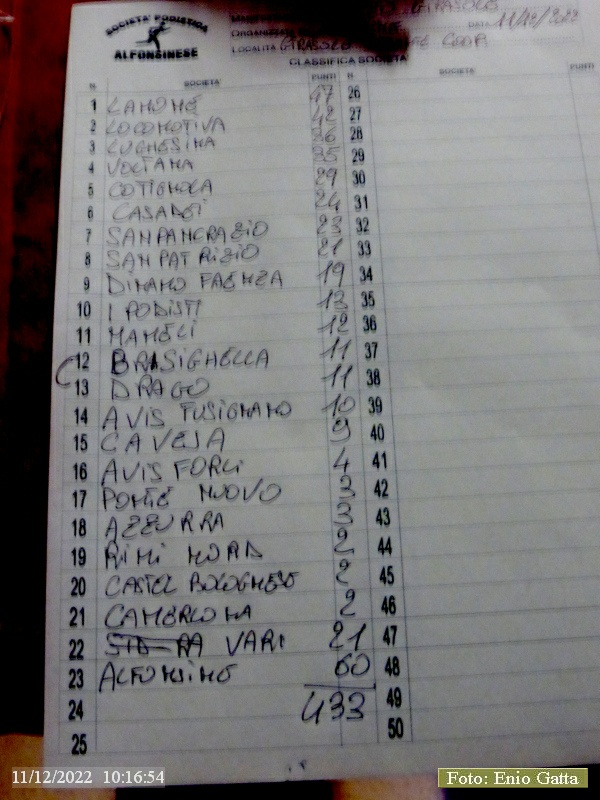 SOCIETA' PODISTICA
ALFONSINESE
GIRASOLE
DATA 11/12/2022
LOCALITÀ GIRASOLE COOP
CLASSIFICA SOCIETÀ
N. SOCIETA' PUNTI N. SOCIETA' PUNTI
1 LAMONE 47 26
2 LOCOMOTIVA 42 27
3 LUGHESINA 36 28
4 VOLTANA 35 29
5 COTIGNOLA 29 30
6 CASADEI 24 31
7 SAN PANCRAZIO 23 32
8 SAN PATRIZIO 21 33
9 DINAMO FAENZA 19 34
10 I PODISTI 13 35
11 MAMELI 12 36
12 BRISIGHELLA 11 37
13 DRAGO 11 38
14 AVIS FUSIGNANO 10 39
15 CAVEJA 9 40
16 AVIS FORLI 4 41
17 PONTE NUOVO 3 42
18 AZZURRA 3 43
19 RIMI NORD 2 44
20 CASTEL BOLOGNESE 2 45
21 CAMERLONA 2 46
22 VARI 21 47
23 ALFONSINE 60 48
24 433 49
25 50
11/12/2022 10:16:54
Foto: Enio Gatta